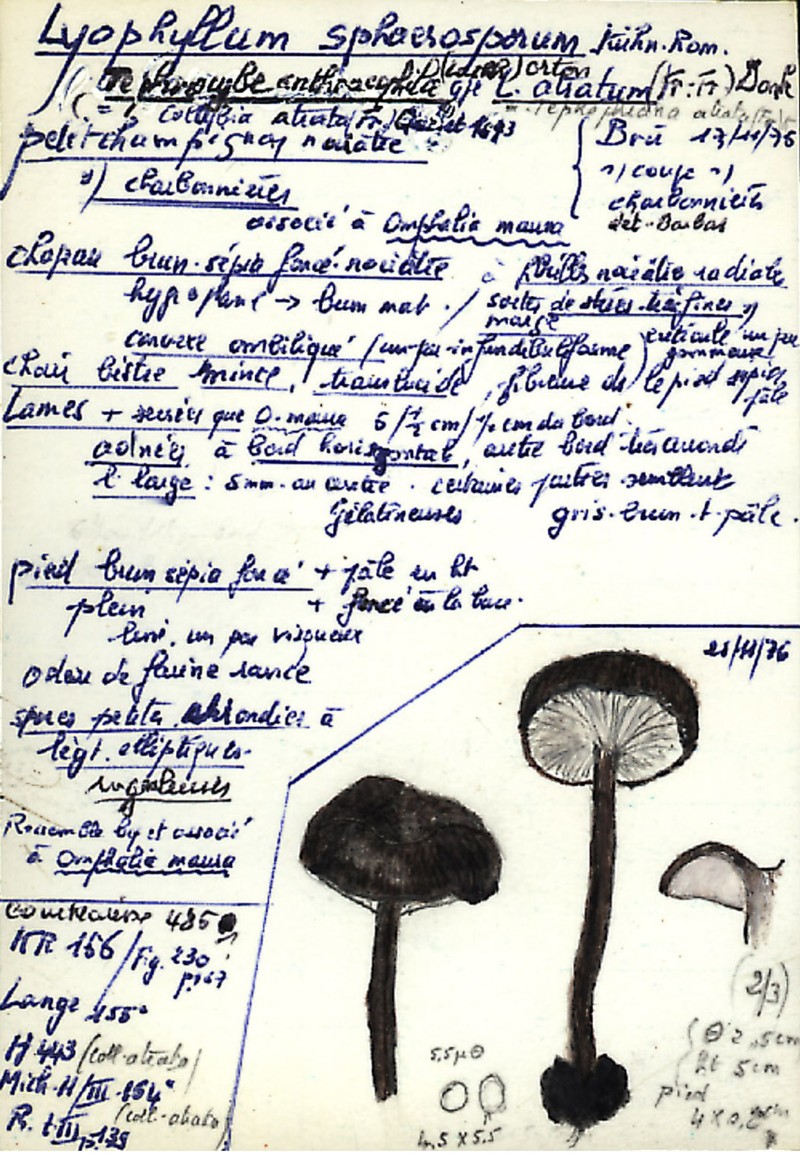 Lyophyllum sphaerosporum Kühn. Rom.
Tephrocybe anthracophila (Lasch) Orton gpe L. atratum (Fr:Fr) Donk
(= Collybia atrata (Fr)
petit champignon noirâtre
Bru 17/11/76
"/ coupe "/
charbonnières
det. Barbas
"/ charbonnières
associé à Omphalia maura
chapeau brun-sépia foncé noirâtre
à fibrilles noirâtres radiales
hygrophane → brun mat.
sortes de stries très fines
marge
convexe ombiliqué / un peu infundibuliforme
cuticule un peu
gommeuse
chair bistre mince, translucide, fibreuse ds le pied sépia
pâle
Lames + serrées que O. maura 6 / ½ cm / ½ cm du bord.
adnées à bord horizontal, autre bord très arrondi
l. large : 5mm au centre. certaines paires semblent
gélatineuses gris-brun t. pâle.
pied brun sépia foncé + pâle en ht
plein + foncé à la base.
un peu visqueux
odeur de farine rance
spores petites arrondies à
légt. elliptiques
ruguleuses
Ressemble bp et associé
à Omphalia maura
21/11/76
Courtecuisse 485
KR 156 / Fig. 230
p. 167
Lange 155
H 443 (coll. atrata)
Mich. H / III. 154
R. t III p. 139
(coll. atrata)
5,5µ Θ
4,5 X 5,5
(2/3)
Θ 2,5cm
ht 5cm
pied
4 X 0,2cm